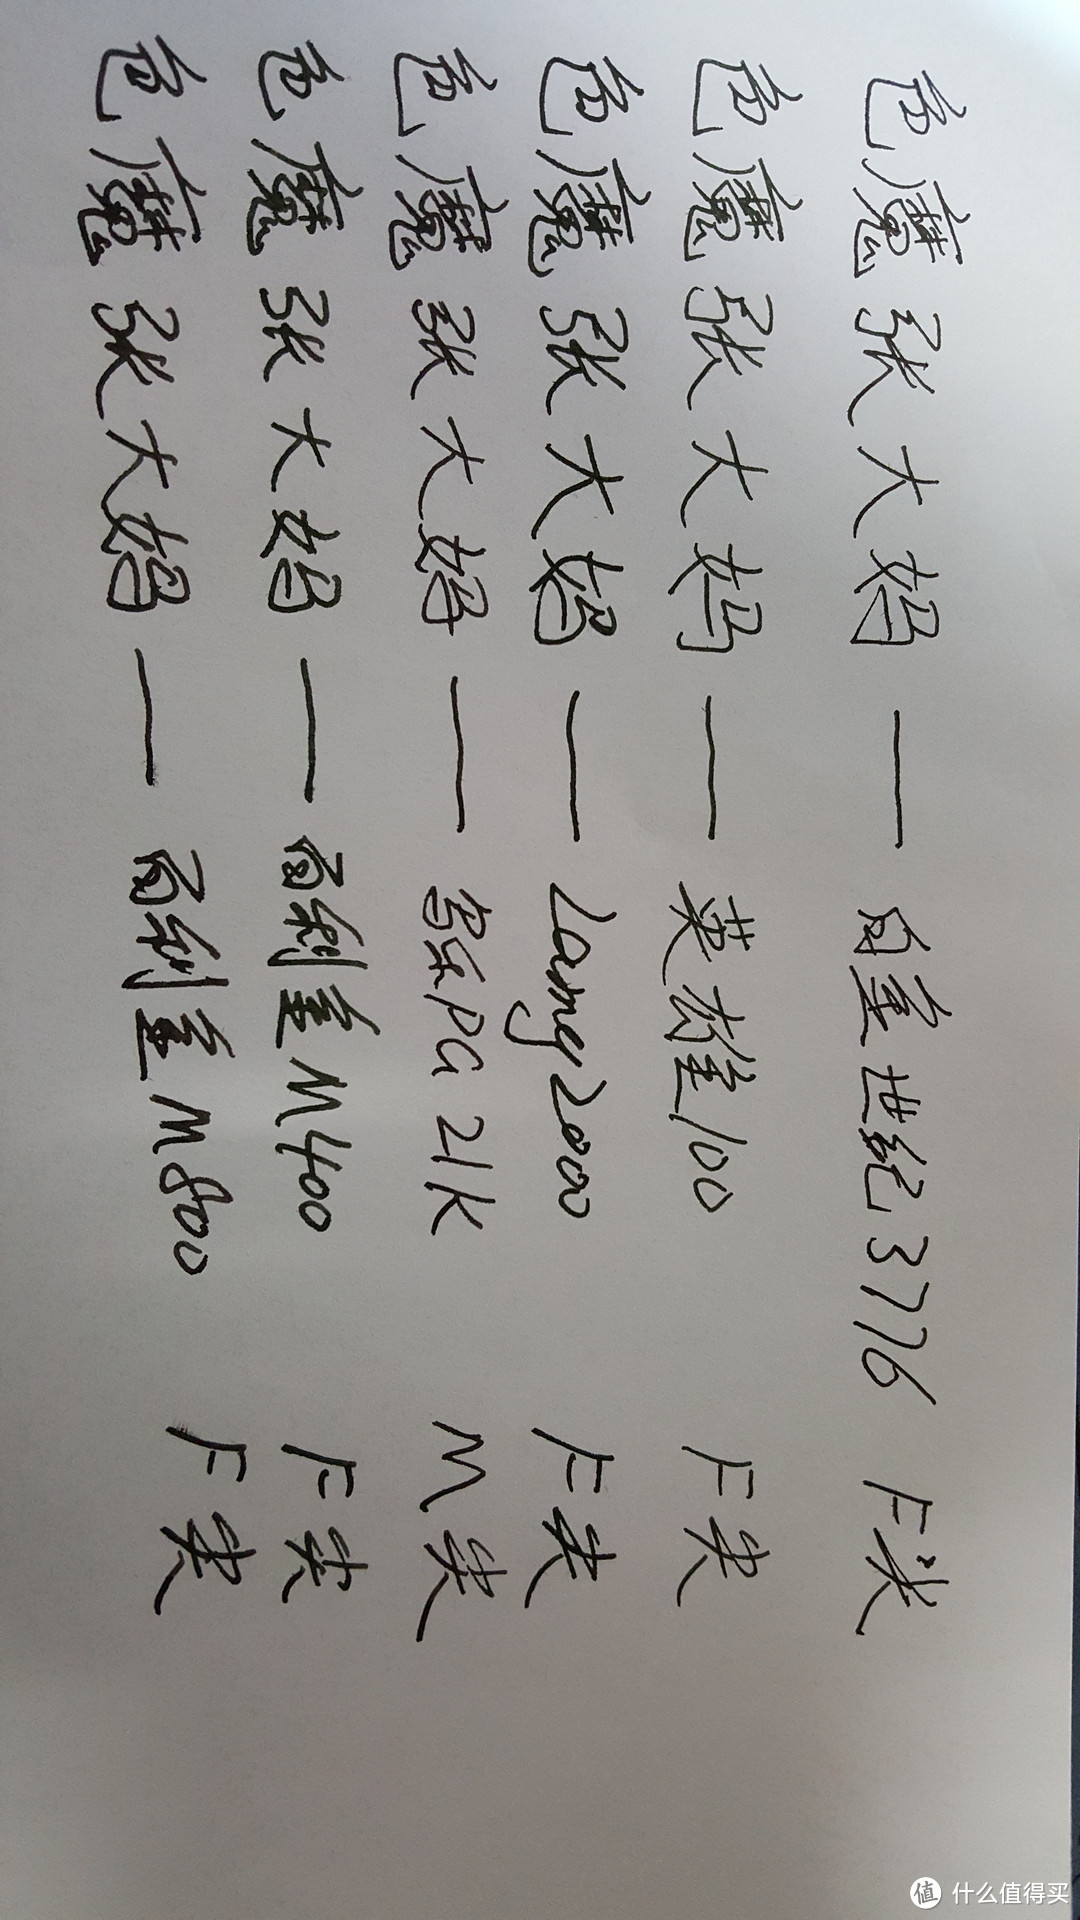 色魔张大妈 — 白金世纪3776 F尖
色魔张大妈 — 英雄100 F尖
色魔张大妈 — Lamy2000 F尖
色魔张大妈 — 写乐PG 21K M尖
色魔张大妈 — 百利金M400 F尖
色魔张大妈 — 百利金M800 F尖
值 什么值得买